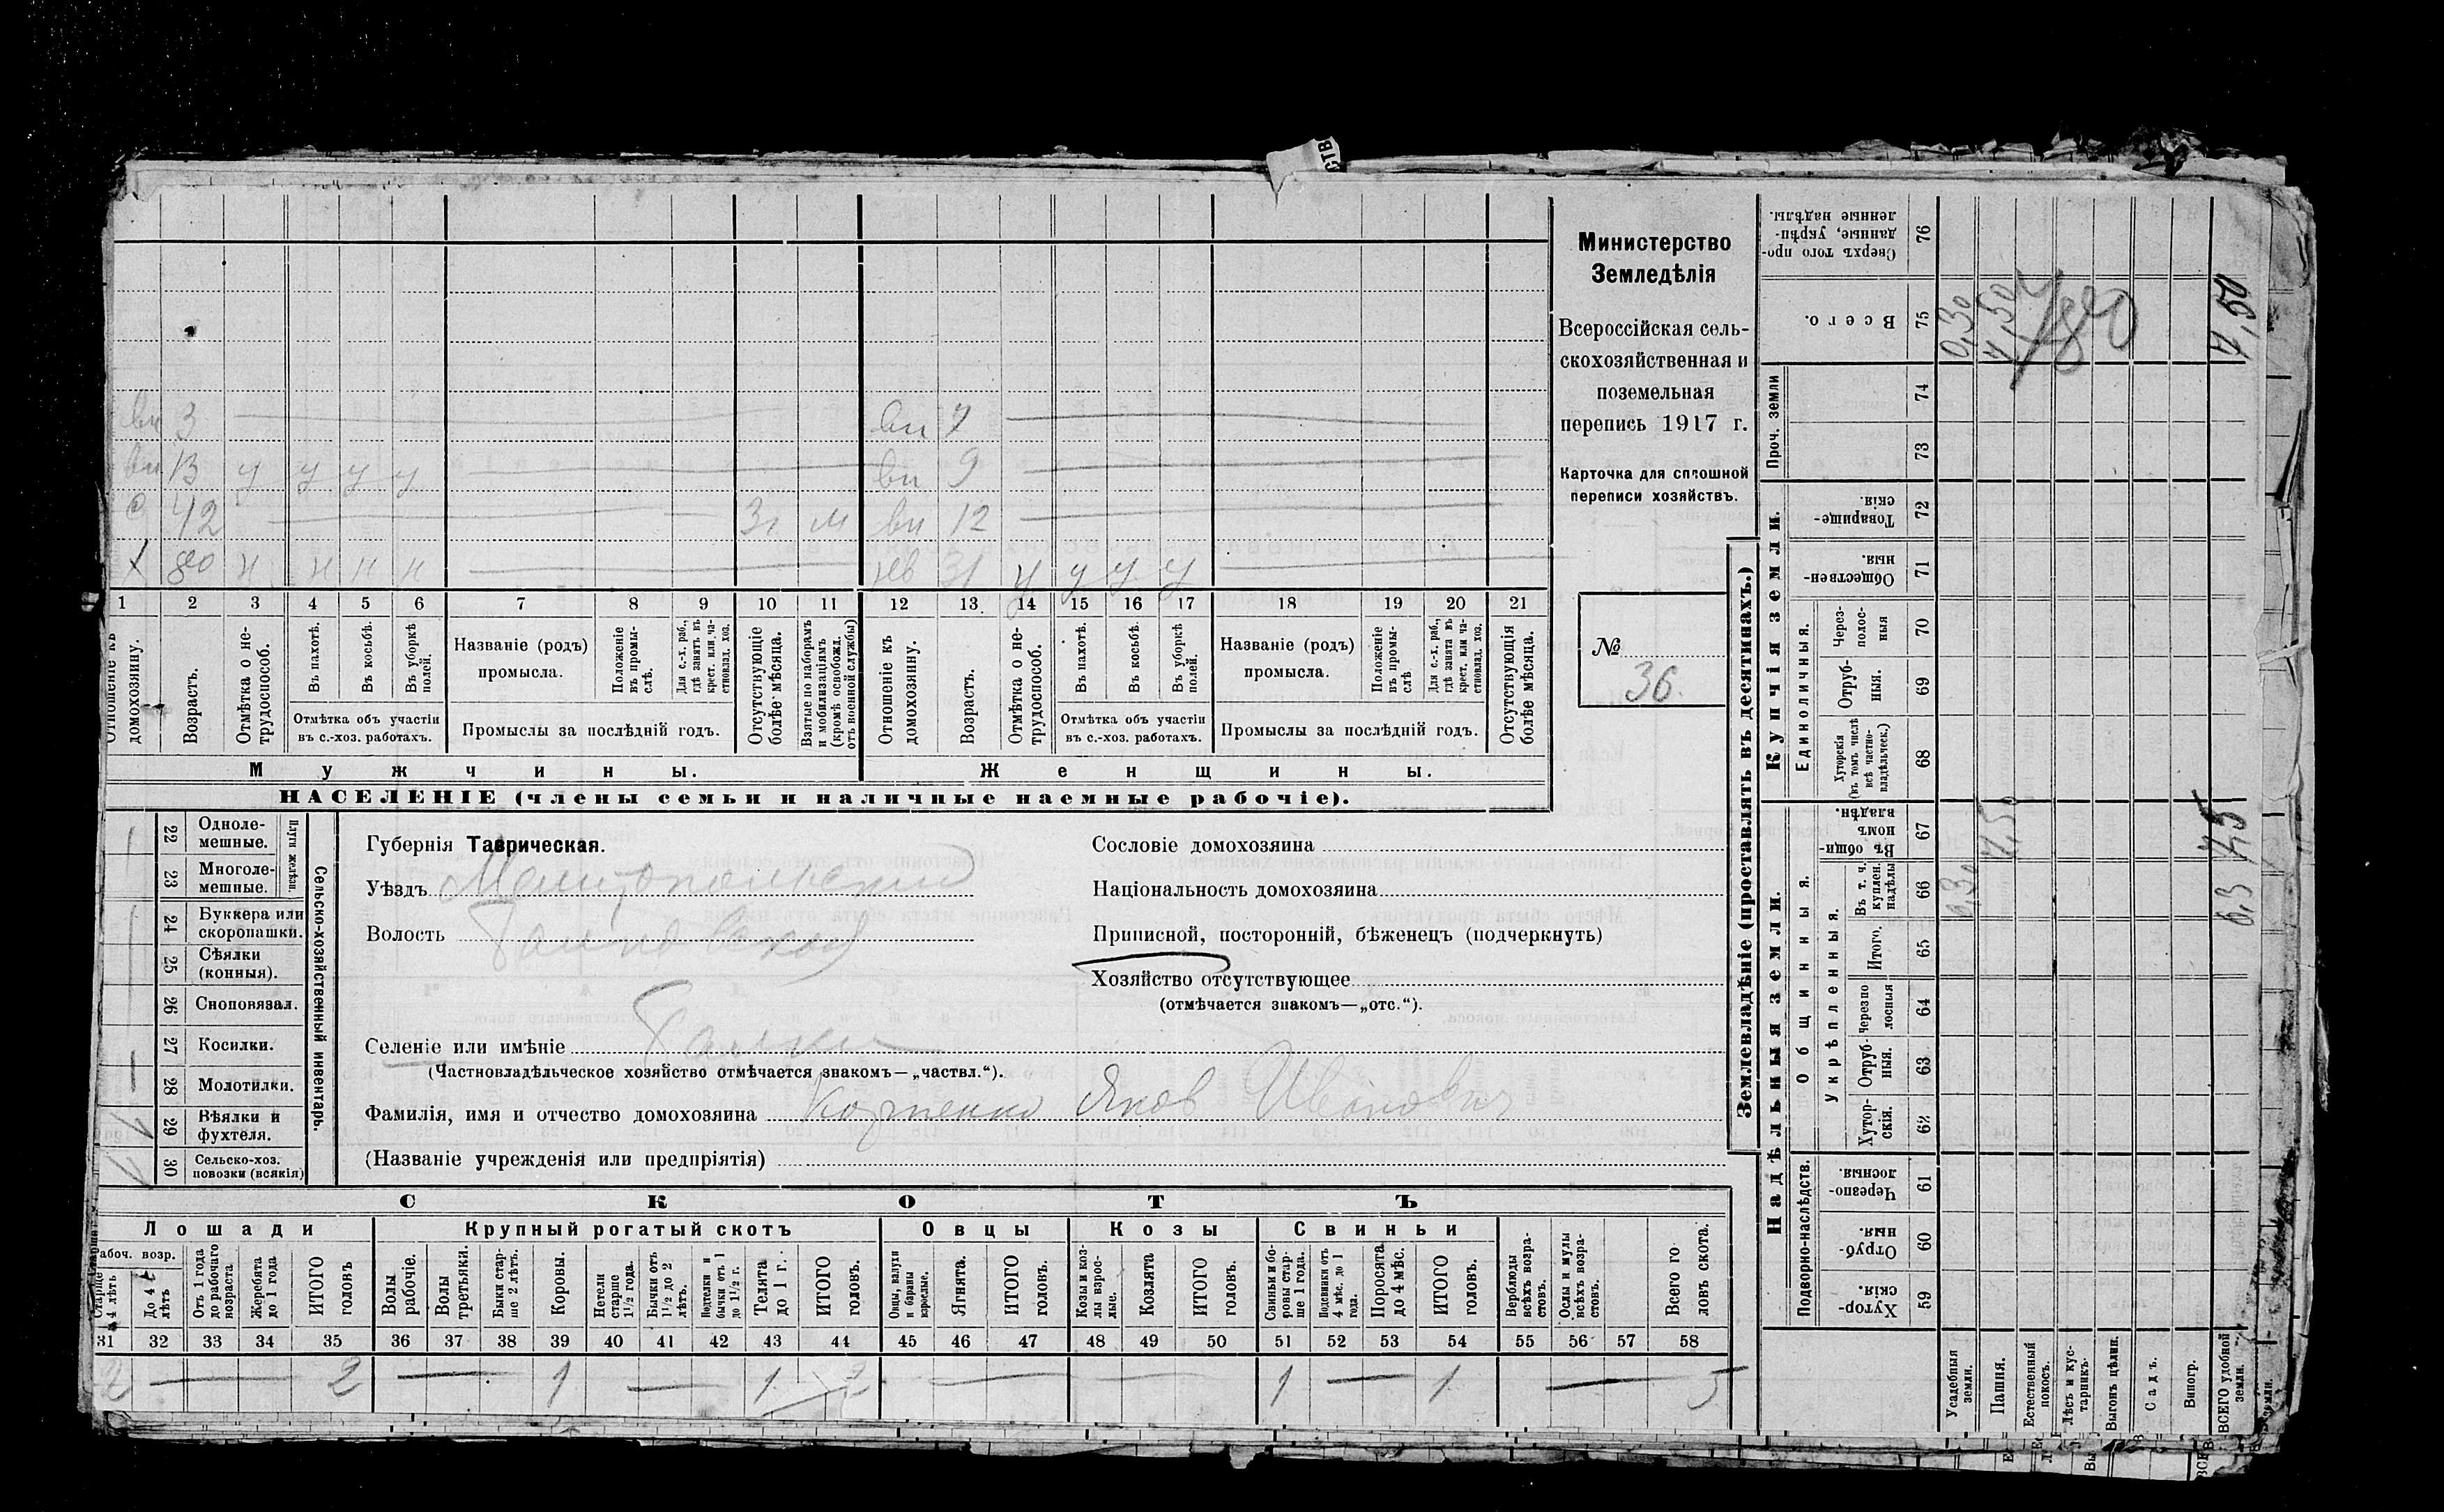 СТВ
вн 3 вн 7
вн 13 у у у у вн 9
с 42 м вн 12
х 80 н н н н нв 31 у у у у
1 2 3 4 5 6 7 8 9 10 11 12 13 14 15 16 17 18 19 20 21
Отношеніе къ домохозяину.
Возрастъ.
Отмѣтка о не-
трудоспособ.
Въ пахотѣ.
Въ косьбѣ.
Въ уборкѣ
полей.
Отмѣтка объ участіи
въ с.-хоз. работахъ.
Названіе (родъ)
промысла.
Положеніе
въ промы-
слѣ.
Для с.-х. раб.,
гдѣ занятъ въ
крест. или ча-
стновлад. хоз.
Промыслы за послѣдній годъ.
Отсутствующіе
болѣе мѣсяца.
Взятые по наборамъ
и мобилизаціямъ
(кромѣ освобожд.
отъ военной службы)
Отношеніе къ
домохозяину.
Возрастъ.
Отмѣтка о не-
трудоспособ.
Въ пахотѣ.
Въ косьбѣ.
Въ уборкѣ
полей.
Отмѣтка объ участіи
въ с.-хоз. работахъ.
Названіе (родъ)
промысла.
Положеніе
въ промы-
слѣ
Для с.-х. раб.,
гдѣ занята въ
крест. или ча-
стновлад. хоз.
Промыслы за послѣдній годъ.
Отсутствующія
болѣе мѣсяца.
Мужчины.
Женщины.
НАСЕЛЕНІЕ (члены семьи и наличные наемные рабочіе).
Министерство
Земледѣлія
Всероссійская сель-
скохозяйственная и
поземельная
перепись 1917 г.
Карточка для сплошной
переписи хозяйствъ.
№
36
22 Однолe-
мешные.
23 Многоле-
мешные.
Плуги желѣзн.
24 Буккера или
скоропашки.
25 Сѣялки
(конныя).
26 Сноповязал.
27 Косилки.
28 Молотилки.
29 Вѣялки и
фухтеля.
30 Сельско-хоз.
повозки (всякія)
Сельско-хозяйственный инвентарь.
Губернія Таврическая.
Уѣздъ Мелитопольскій
Волость
Селеніе или имѣніе
(Частновладѣльческое хозяйство отмѣчается знакомъ—„частвл.“).
Фамилія, имя и отчество домохозяина Яковъ Ивановичъ
(Названіе учрежденія или предпріятія)
Сословіе домохозяина
Національность домохозяина
Приписной, посторонній, бѣженецъ (подчеркнуть)
Хозяйство отсутствующее
(отмѣчается знакомъ—„отс.“).
СКОТЪ
Лошади
Крупный рогатый скотъ
Овцы
Козы
Свиньи
Рабоч. возр.
Старше
4 лѣтъ
До 4
лѣтъ
Отъ 1 года
до рабочаго
возраста
Жеребята
до 1 года
ИТОГО
головъ
Волы
рабочіе.
Волы
третьяки.
Быки стар-
ше 2 лѣтъ.
Коровы.
Нетели
старше
1½ года.
Бычки отъ
1½ до 2
лѣтъ.
Подтелки и
бычки отъ 1
до 1½ г.
Телята
до 1 г.
ИТОГО
головъ.
Овцы, валухи
и бараны
взрослые.
Ягнята.
ИТОГО
головъ.
Козы и коз-
лы взрос-
лые.
Козлята
ИТОГО
головъ.
Свиньи и бо-
ровы стар-
ше 1 года.
Подсвинки отъ
4 мѣс. до 1
года.
Поросята
до 4 мѣс.
ИТОГО
головъ.
Верблюды
всѣхъ возра-
стовъ.
Ослы и мулы
всѣхъ возра-
стовъ.
Всего го
ловъ скота.
31 32 33 34 35 36 37 38 39 40 41 42 43 44 45 46 47 48 49 50 51 52 53 54 55 56 57 58
2 — 2 — 1 — 1 2 — 1 — 1 — 5
Землевладѣніе (проставлять въ десятинахъ.)
Надѣльныя земли.
Купчія земли.
Проч. земли
Подворно-наслѣдств.
Общинныя.
Укрѣпленныя.
Единоличныя.
Хутор-
скія. 59
Отруб-
ныя. 60
Черезпо-
лосныя. 61
Хутор-
скія. 62
Отруб-
ныя. 63
Черезпо
лосныя 64
Итого. 65
Въ т. ч.
куплен.
надѣлы 66
Въ общин-
номъ
владѣн. 67
Хуторскія
(въ томъ числѣ
всѣ частно-
владѣльческ.) 68
Отруб-
ныя. 69
Через-
полос-
ныя 70
Обществен-
ныя. 71
Товарище-
скія. 72
73
74
Всего. 75
Сверхъ того про-
данные, укрѣп-
ленные надѣлы. 76
Усадебныя
земли.
0,30 0,30
Пашня.
7,50 7,50
Естественный
покосъ.
Лѣсъ и кус-
тарникъ.
Выгонъ цѣлин.
Садъ.
Виногр.
ВСЕГО удобной
земли.
7,50